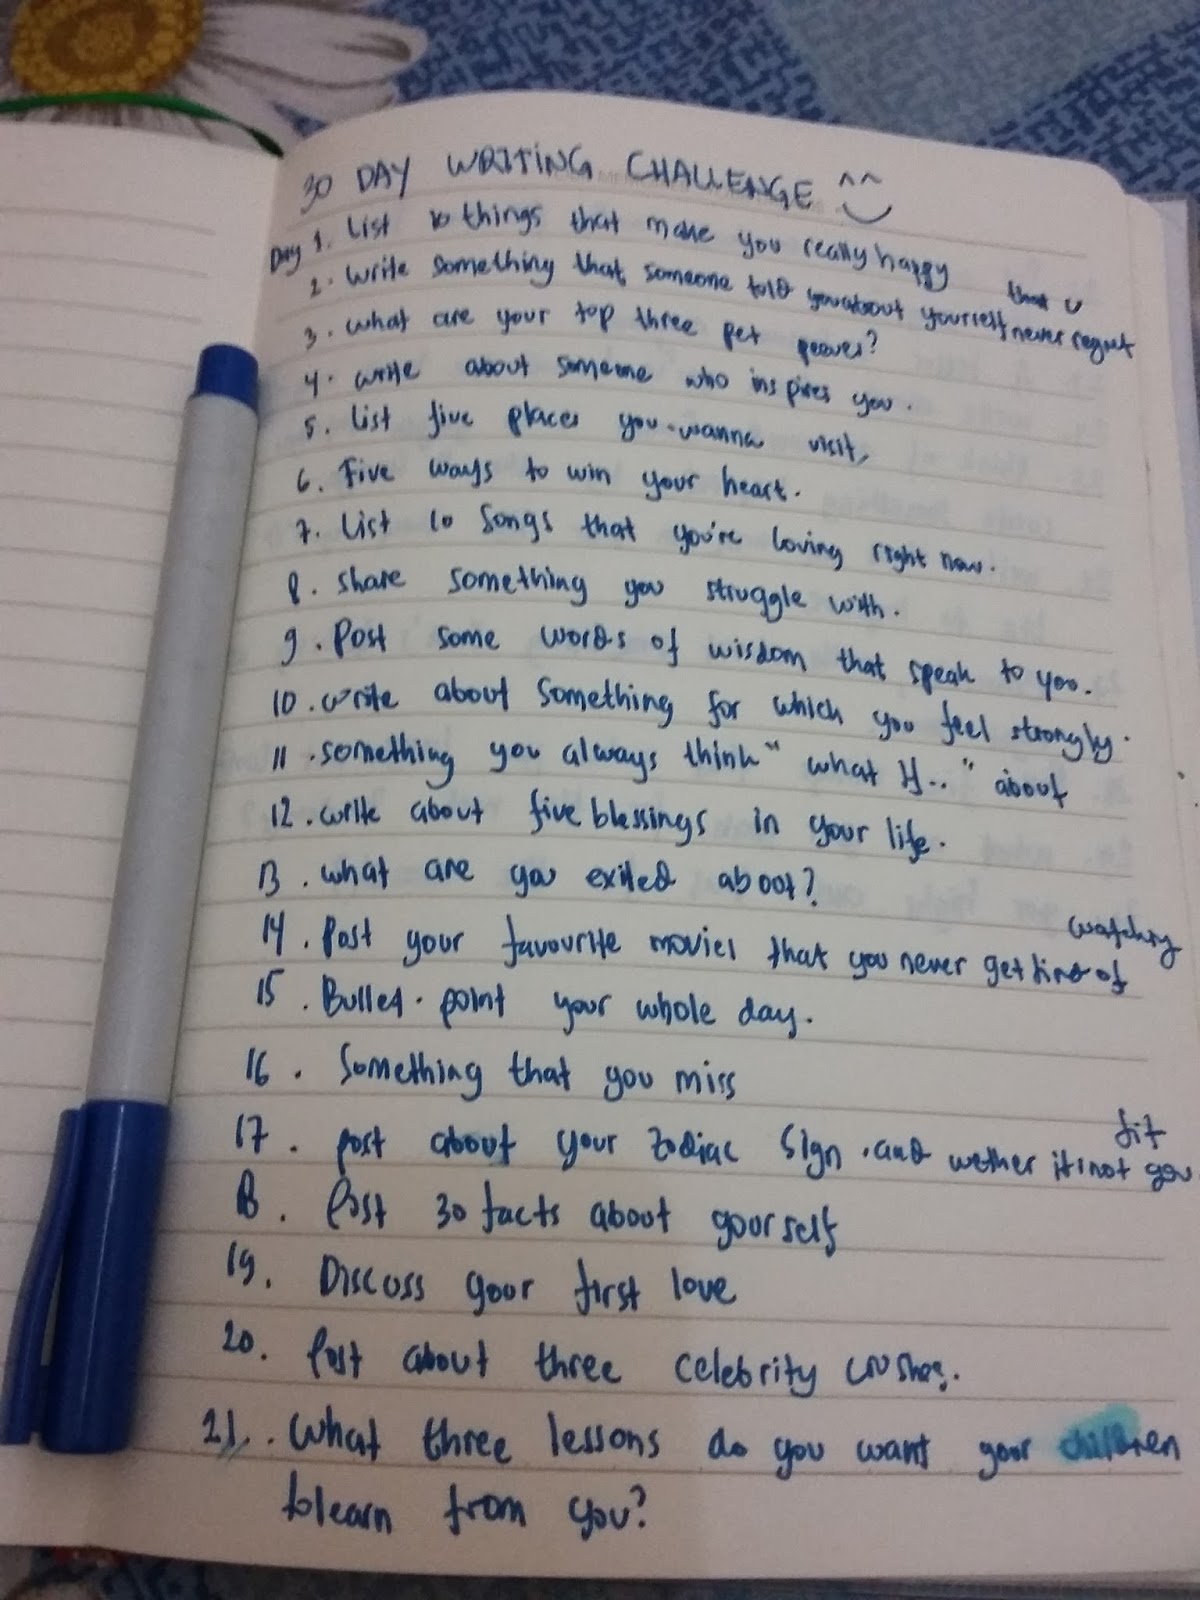 30 DAY WRITING CHALLENGE ^^
Day 1. List 10 things that make you really happy
2. write something that someone told you about yourself that u never regret
3. what are your top three pet peeves?
4. write about someone who inspires you.
5. List five places you-wanna visit,
6. Five ways to win your heart.
7. List 10 songs that you're loving right now.
8. share something you struggle with.
9. Post some words of wisdom that speak to you.
10. write about something for which you feel strongly.
11. something you always think "what If.." about
12. write about five blessings in your life.
13. what are you exited about?
14. Post your favourite movies that you never get tired of watching
15. Bullet-point your whole day.
16. Something that you miss
17. post about your zodiac sign.and wether it/not fit you
18. Post 30 facts about yourself
19. Discuss your first love
20. Post about three celebrity crushes.
21. What three lessons do you want your children
to learn from you?